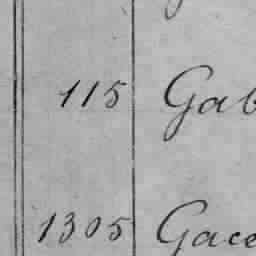 115 Gab
1305 Gace